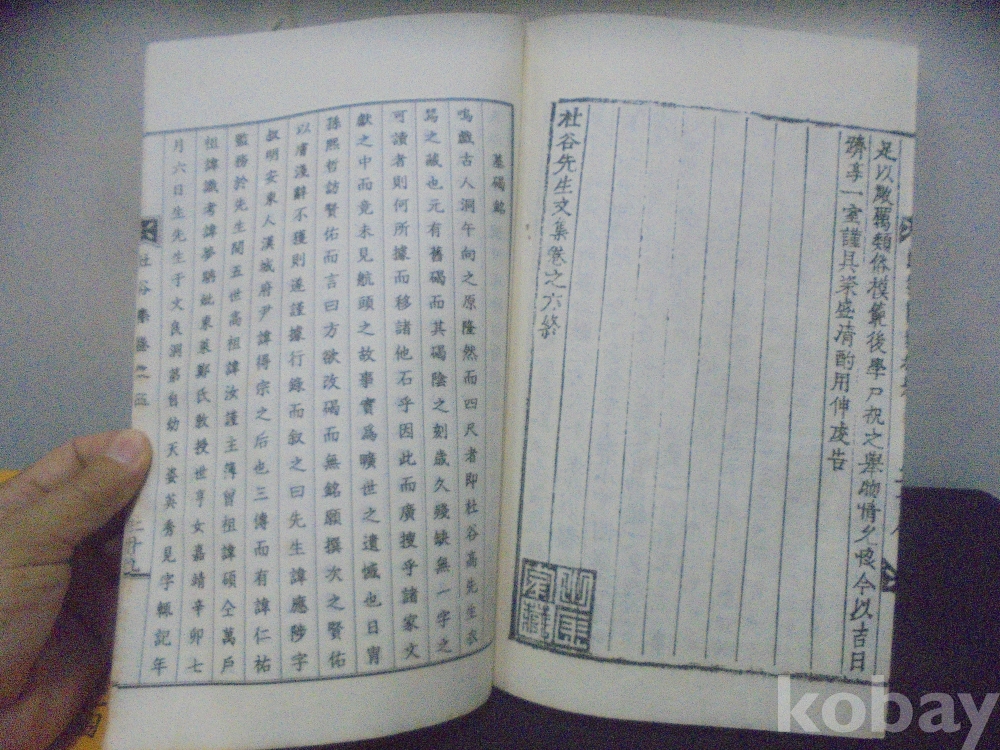 足以敵萬類俗模範後學尸祝之擧物情允惬今以吉日
躋享一室謹具粢盛清酌用伸虔告
杜谷先生文集卷之六終
墓碣銘
嗚戱古人洞午向之原隆然而四尺者即杜谷高先生衣
舃之藏也元有舊碣而其碣陰之刻歲久殘缺無一字之
可讀者則何所據而移諸他石乎因此而廣搜乎諸家文
獻之中而竟未見航頭之故事實爲曠世之遺憾也日胄
孫熙哲訪賢佑而言曰方欲改碣而無銘願撰次之賢佑
以膚淺辭不獲則遂謹據行錄而敘之曰先生諱應陟字
叔明安東人漢城府尹諱得宗之后也三傳而有諱仁祐
監務於先生間五世高祖諱汝謹主簿曾祖諱碩仝萬戶
祖諱識考諱夢聃妣東萊鄭氏教授世亨女嘉靖辛卯七
月六日生先生于文良洞第自幼天姿英秀見字輒記年
杜谷集卷之五
二十九
kobay